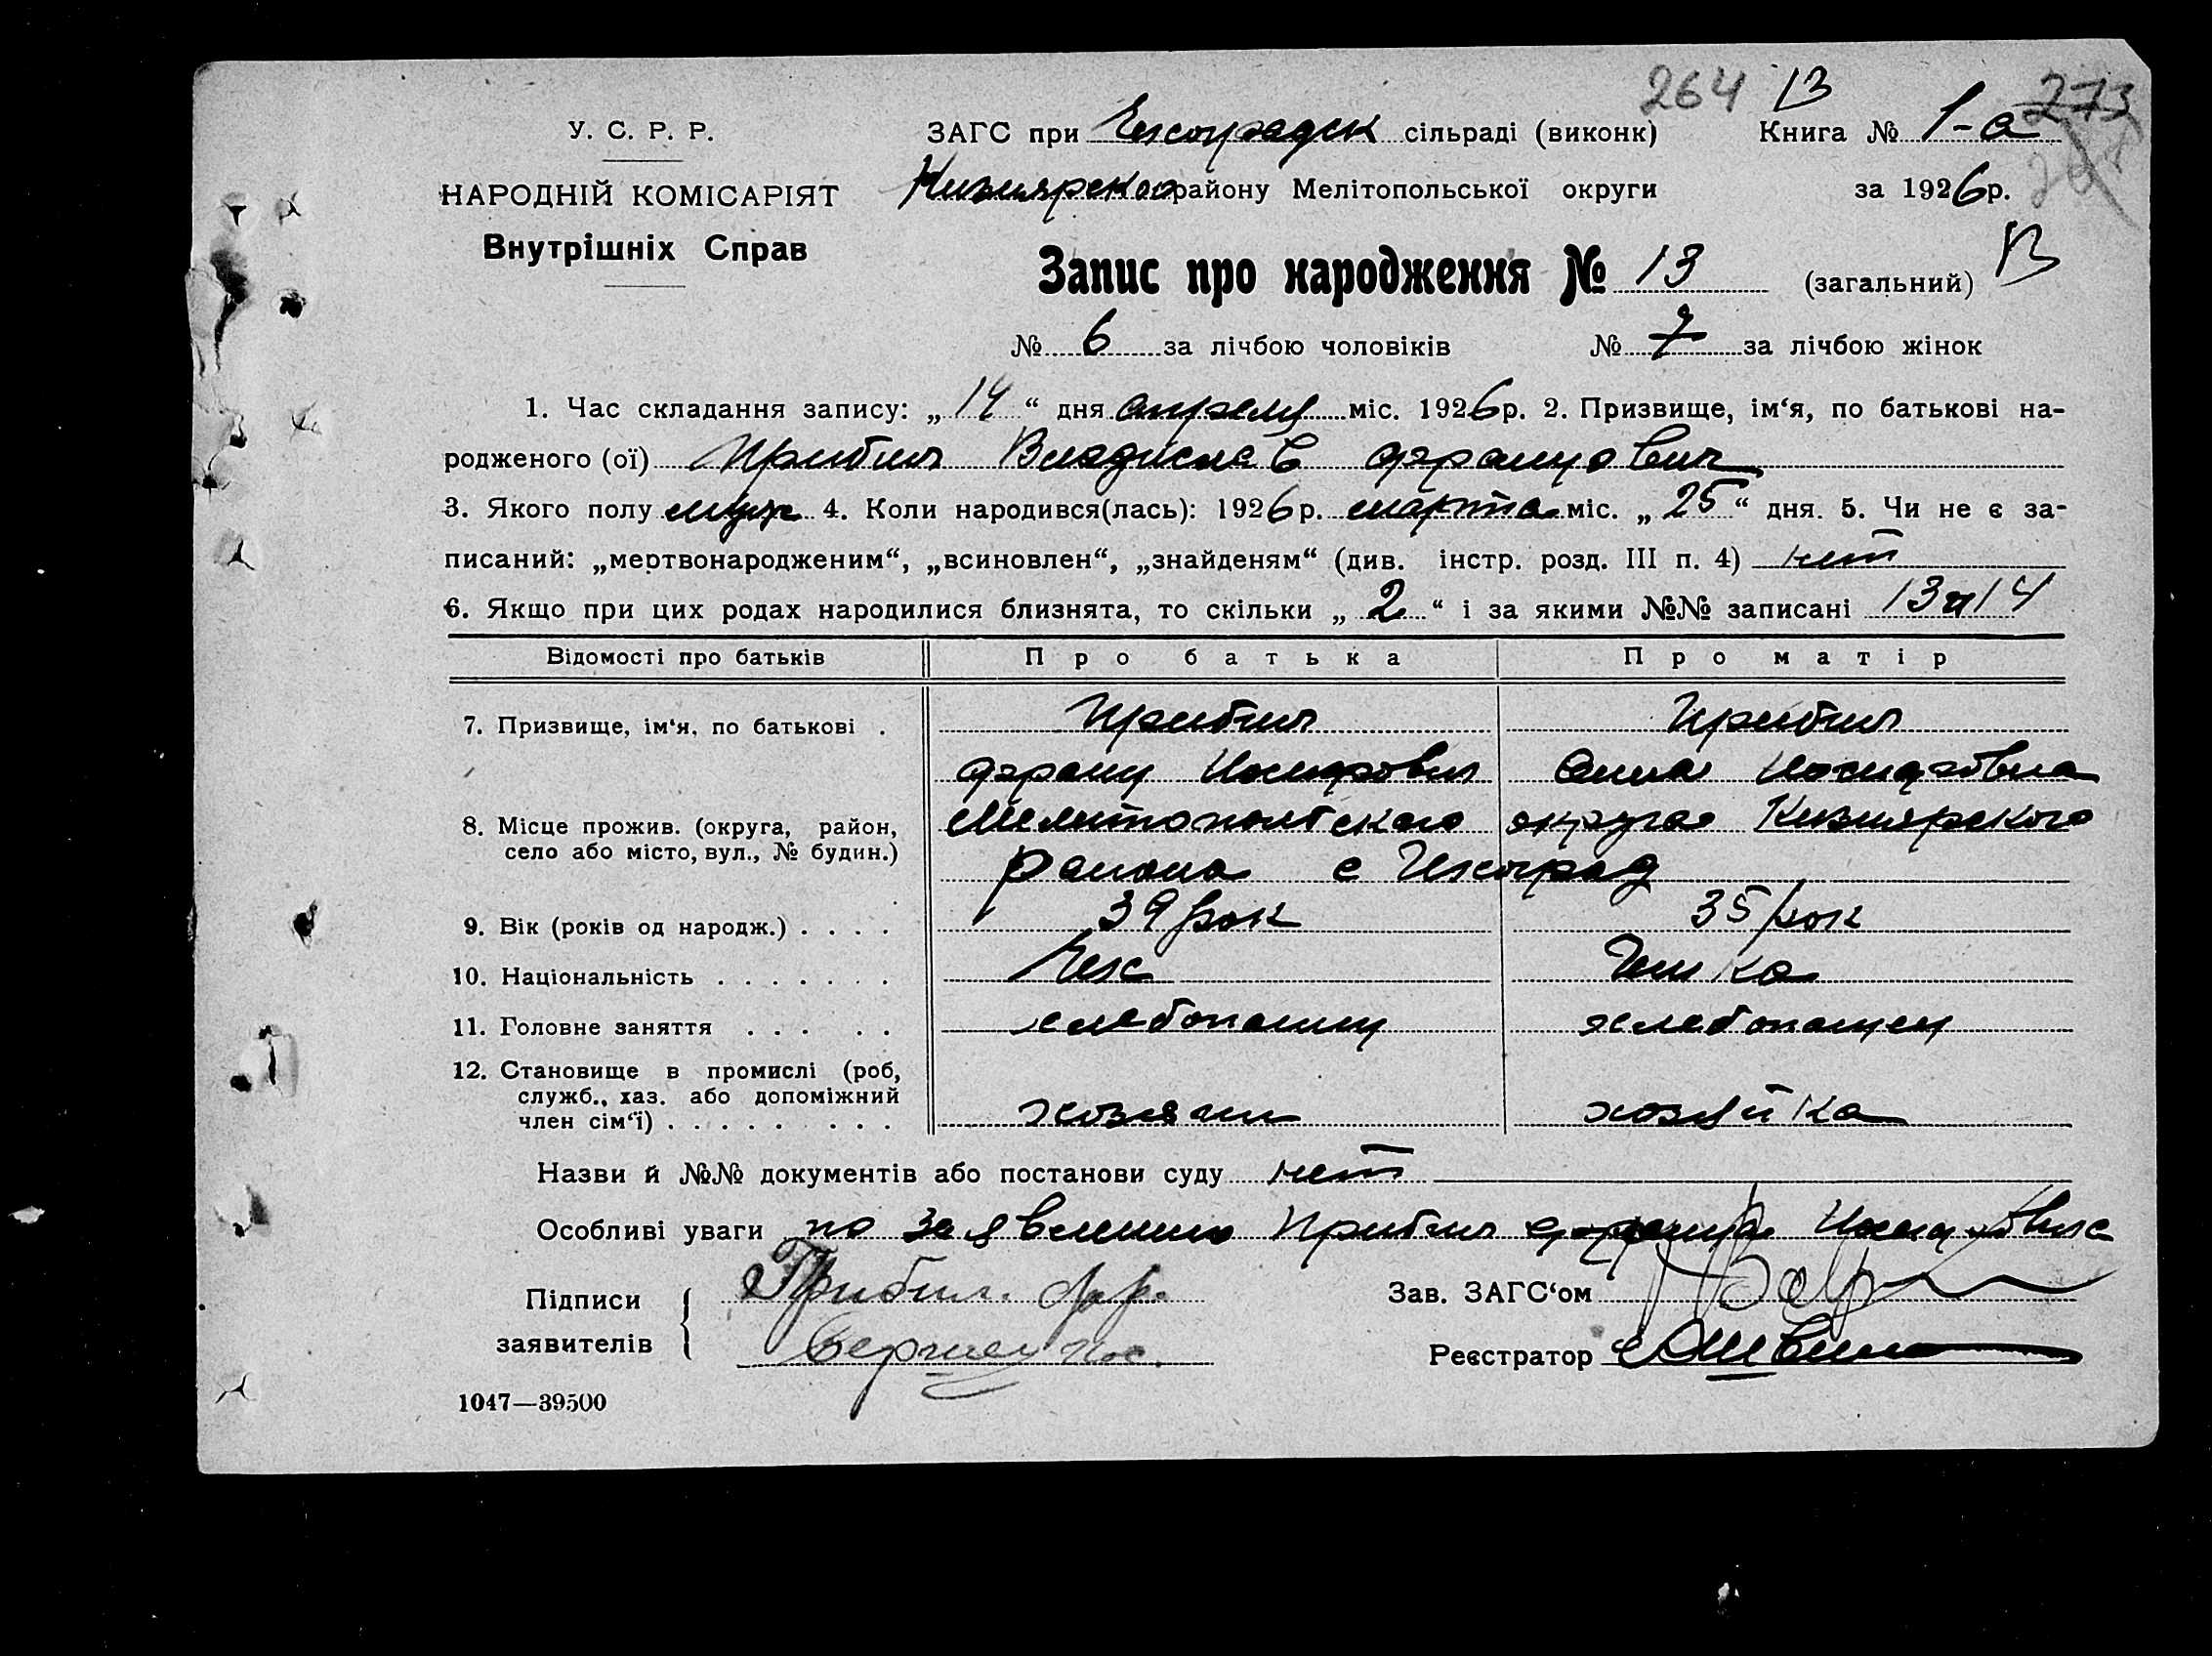 264 13 273
У. С. Р. Р.
НАРОДНІЙ КОМІСАРІЯТ
Внутрішніх Справ
ЗАГС при Чехоградск сільраді (виконк) Книга № 1-а
Кизиярского району Мелітопольської округи за 1926р.
Запис про народження № 13 (загальний) 13
№ 6 за лічбою чоловіків № 7 за лічбою жінок
1. Час складання запису: „14“ дня апреля міс. 1926р. 2. Призвище, ім‘я, по батькові на-
родженого (ої) Прибыл Владислав Францович
3. Якого полу муж 4. Коли народився(лась): 1926р. марта міс. „25“ дня. 5. Чи не є за-
писаний: „мертвонародженим“, „всиновлен“, „знайденям“ (див. інстр. розд. III п. 4) нет
6. Якщо при цих родах народилися близнята, то скільки „2“ і за якими №№ записані 13 и 14
Відомості про батьків Про батька Про матір
7. Призвище, ім‘я, по батькові . Прибыл Прибыл
Франц Иосифович Анна Иосифовна
8. Місце прожив. (округа, район, село або місто, вул., № будин.) Мелитопольского округа Кизиярского
района с Чехоград
9. Вік (років од народж.) . . . . 39 рок 35 рок
10. Національність . . . . . . . Чех Чешка
11. Головне заняття . . . . . хлебопашец хлебопашец
12. Становище в промислі (роб, служб., хаз. або допоміжний член сім‘ї) . . . . . . . . хозяин хозяйка
Назви й №№ документів або постанови суду нет
Особливі уваги по заявлению Прибыл Франца Иосифовича
Підписи заявителів Прибил. Фр. Зав. ЗАГС‘ом
Реєстратор
1047—39500